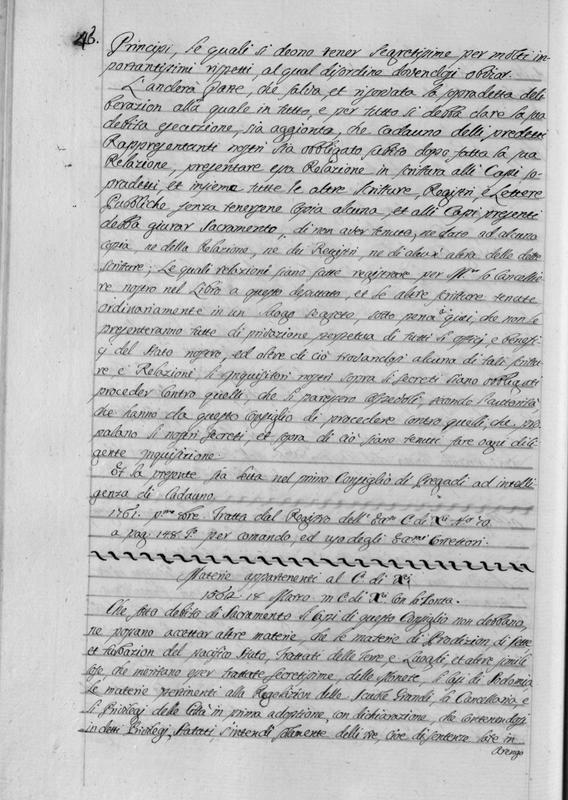 43.
Principi, le quali si deono tener secretissime per molti im-
portantissimi rispetti, al qual disordine dovendosi obviar.
L'anderà Parte, che salva et riservata la sopradetta deli-
berazion alla quale in tutto, e per tutto si debba dare la sua
debita esecuzione, sia aggionta, che cadauno delli predetti
Rappresentanti nostri sia obbligato subito dopo fatta la sua
Relazione, presentare essa Relazione in scrittura alli Capi so-
pradetti, et insieme tutte le altre Scritture, Registri, e Lettere
Pubbliche senza tenersene copia alcuna, et alli Capi presenti
debba giurar Sacramento, di non aver tenuta, ne dato ad alcuno
copia, ne della Relazione, ne dei Registri, ne di alcun' altra delle dette
scritture; Le quali relazioni siano fatte registrare per il Cancellie-
re nostro nel Libro a questo deputato, et le altre scritture tenute
ordinariamente in un luogo secreto, sotto pena a quei, che non le
presenteranno tutte di privazione perpetua di tutti li offizj e benefi-
zj del Stato nostro, ed oltre di ciò trovandosi alcuna di tali scrittu-
re e Relazioni li Inquisitori nostri sopra li secreti siano obbligati
proceder contro quelli, che li paressero colpevoli, secondo l'autorità,
che hanno da questo Consiglio di procedere contro quelli, che pro-
palano li nostri secreti, et sopra di ciò siano tenuti fare ogni dili-
gente inquisizione.
Et la presente sia letta nel primo Consiglio di Pregadi ad intelli-
genza di cadauno.
1761. p.mo Tratta dal Registro dell' Ecc.mo C. di X.ci
a pag. 148 per comando, ed uso degli Ecc.mi Correttori.
Materie appartenenti al C. di X.ci
18 Marzo in C. di X.ci con la Zonta.
Che sotto debito di Sacramento li Capi di questo Consiglio non debbano,
ne possano accettar altre materie, che le materie di Tradizion di Sette
et turbazion del pacifico Stato, Trattati delle Terre, e Luoghi et altre simili
cose, che meritano esser trattate secretissime, delle Monete, li casi di Sodomia,
Le materie pertinenti alla Regolazion delle Scuole Grandi, la Cancellaria, e
li Privilegj delle Città in prima adoptione, con dichiarazione, che contenendosi
in detti Privilegj, Statuti, s'intendi solamente delli tre, cioè di sentenze fatte in
Arengo